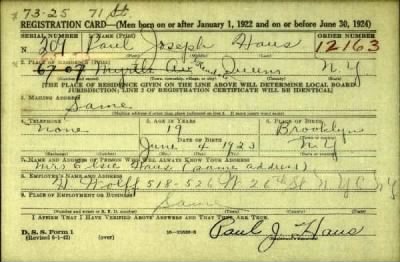 73-25 71 St
REGISTRATION CARD—(Men born on or after January 1, 1922 and on or before June 30, 1924)
SERIAL NUMBER 1. NAME (Print) ORDER NUMBER
301 Paul Joseph Haus 12163
2. PLACE OF RESIDENCE (Print)
67-07 Myrtle Ave Queens N.Y.
[THE PLACE OF RESIDENCE GIVEN ON THE LINE ABOVE WILL DETERMINE LOCAL BOARD
JURISDICTION; LINE 2 OF REGISTRATION CERTIFICATE WILL BE IDENTICAL]
3. MAILING ADDRESS
Same
4. TELEPHONE 5. AGE IN YEARS 6. PLACE OF BIRTH
None 19 Brooklyn
DATE OF BIRTH
June 4 1923 N.Y
7. NAME AND ADDRESS OF PERSON WHO WILL ALWAYS KNOW YOUR ADDRESS
Mrs Elsie Haus (same address)
8. EMPLOYER'S NAME AND ADDRESS
H Wolff 518-526 W 26th St N.Y.C. N.Y
9. PLACE OF EMPLOYMENT OR BUSINESS
Same
I AFFIRM THAT I HAVE VERIFIED ABOVE ANSWERS AND THAT THEY ARE TRUE.
D. S. S. Form 1
Paul J. Haus